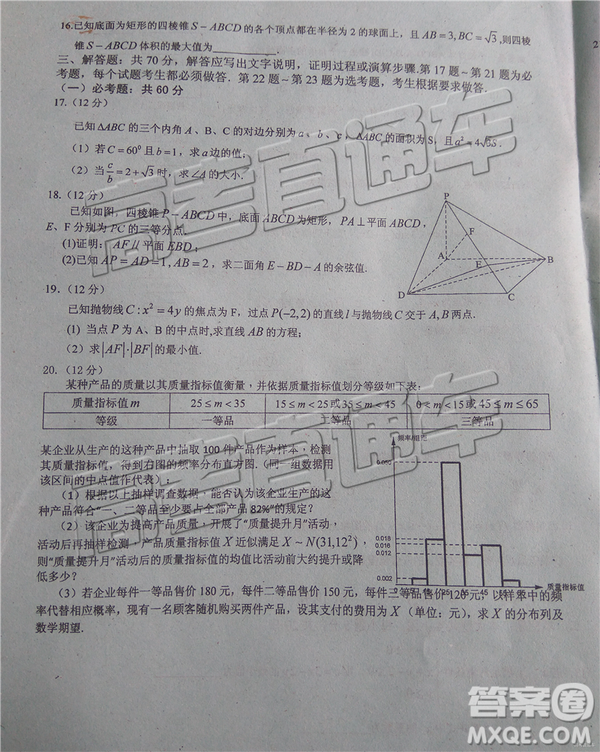 16.已知底面为矩形的四棱锥S－ABCD的各个顶点都在半径为2的球面上，且AB=3,BC=√3,则四棱
锥S－ABCD体积的最大值为____________.
三、解答题：共70分，解答应写出文字说明，证明过程或演算步骤.第17题~第21题为必
考题，每个试题考生都必须做答．第22题~第23题为选考题，考生根据要求做答．
（一）必考题：共60分
17.（12分）
已知△ABC的三个内角A、B、C的对边分别为a、b、c，△ABC的面积为S，且a²=4√3S.
（1）若C=60⁰且b=1，求a边的值；
（2）当c/b=2+√3时，求∠A的大小.
18.（12分）
已知如图，四棱锥P－ABCD中，底面ABCD为矩形，PA⊥平面ABCD，
E、F分别为PC的三等分点.
(1)证明：AF//平面EBD；
(2)已知AP=AD=1,AB=2，求二面角E－BD－A的余弦值.
P
F
A
E
B
D
C
19.（12分）
已知抛物线C:x²=4y的焦点为F，过点P(-2,2)的直线l与抛物线C交于A,B两点.
(1) 当点P为A、B的中点时,求直线AB的方程；
（2）求|AF|·|BF|的最小值.
20.（12分）
某种产品的质量以其质量指标值衡量，并依据质量指标值划分等级如下表：
质量指标值m 25≤m<35 15≤m<25或35≤m<45 0<m<15或45≤m≤65
等级 一等品 二等品 三等品
某企业从生产的这种产品中抽取100件产品作为样本，检测
其质量指标值，得到右图的频率分布直方图.（同一组数据用
该区间的中点值作代表）：
（1）根据以上抽样调查数据，能否认为该企业生产的这
种产品符合“一、二等品至少要占全部产品82%”的规定？
（2）该企业为提高产品质量，开展了“质量提升月”活动，
活动后再抽样检测，产品质量指标值X近似满足X~N(31,12²)，
则“质量提升月”活动后的质量指标值的均值比活动前大约提升或降
低多少？
频率/组距
0.018
0.016
0.012
0.002
质量指标值
（3）若企业每件一等品售价180元，每件二等品售价150元，每件三等品售价120元，以样本中的频
率代替相应概率，现有一名顾客随机购买两件产品，设其支付的费用为X（单位：元），求X的分布列及
数学期望.
高考直通车
高考直通车
答案圈
MXQE.COM